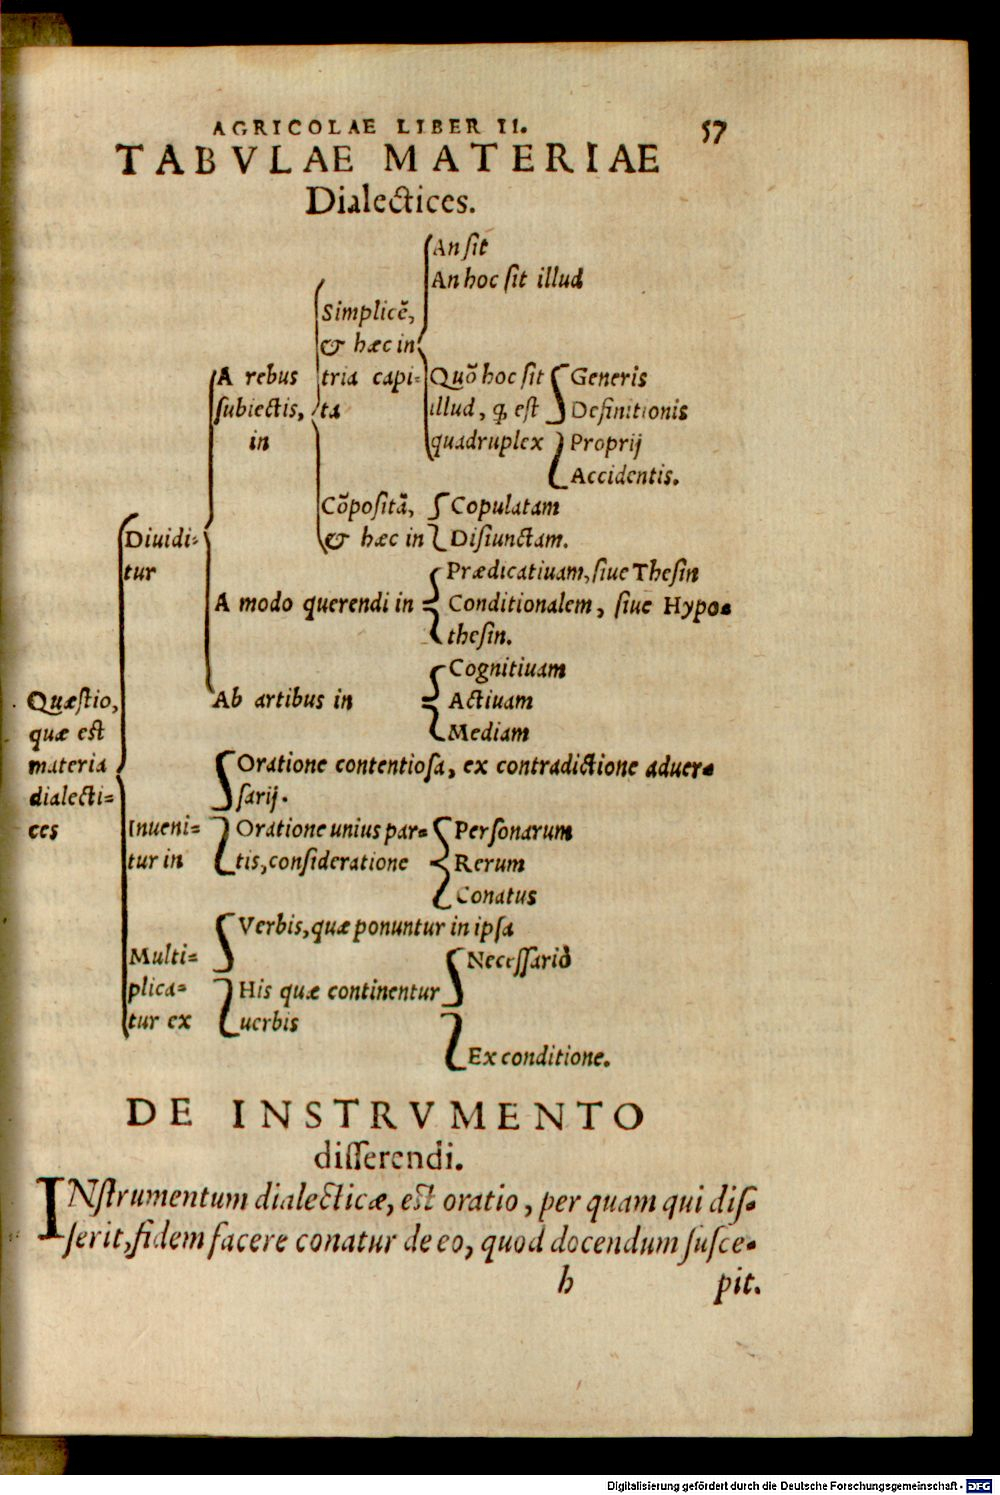 AGRICOLAE LIBER II. 57
TABVLAE MATERIAE
Dialectices.
An sit
An hoc sit illud
Simplicē,
& hæc in
A rebus tria capi- Quō hoc sit Generis
subiectis, ta illud, q̨ est Definitionis
in quadruplex Proprij
Accidentis.
Cōpositā, Copulatam
Diuidi- & hæc in Disiunctam.
tur Prædicatiuam, siue Thesin
A modo querendi in Conditionalem, siue Hypo-
thesin.
Cognitiuam
Quæstio, Ab artibus in Actiuam
quæ est Mediam
materia Oratione contentiosa, ex contradictione aduer-
dialecti= sarij.
ces Inueni= Oratione unius par= Personarum
tur in tis, consideratione Rerum
Conatus
Verbis, quæ ponuntur in ipsa
Multi= Necessariò
plica= His quæ continentur
tur ex uerbis
Ex conditione.
DE INSTRVMENTO
disserendi.
INstrumentum dialecticæ, est oratio, per quam qui dis-
serit, fidem facere conatur de eo, quod docendum susce-
h pit.
Digitalisierung gefördert durch die Deutsche Forschungsgemeinschaft - DFG